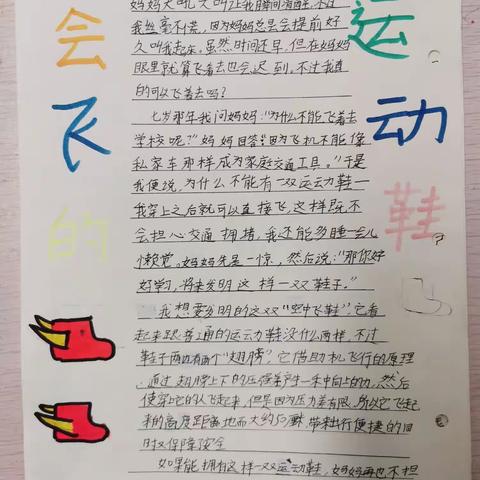 会飞的
运动鞋
妈妈大吼大叫让我瞬间清醒,不过
我丝毫不慌,因为妈妈总是会提前好
久叫我起床。虽然时间还早,但在妈妈
眼里就算飞着去也会迟到。不过我真
的可以飞着去吗?
七岁那年我问妈妈:“为什么不能飞着去
学校呢?”妈妈回答:“因为飞机不能像
私家车那样成为家庭交通工具。”于是
我便说,为什么不能有一双运动鞋—
我穿上之后就可以直接飞,这样既不
会担心交通拥堵,我还能多睡一会儿
懒觉。妈妈先是一惊,然后说:“那你好
好学习,将来发明这样一双鞋子。”
我想要发明的这双“空中飞鞋”,它看
起来跟普通的运动鞋没什么两样,不过
鞋子两边有两个“翅膀”,它借助机飞行的原理
,通过翅膀上下的压强差产生一种向上的力,然后
使穿它的人飞起来,但是因为压力差有限,所以它飞起
来的高度距离地面大约50厘米,带来出行便捷的同
时又保障安全
如果能拥有这样一双运动鞋,妈妈再也不担